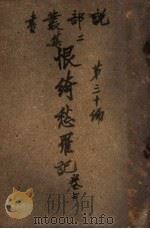 說部叢書
二集
第三十編
恨綺愁羅記 卷